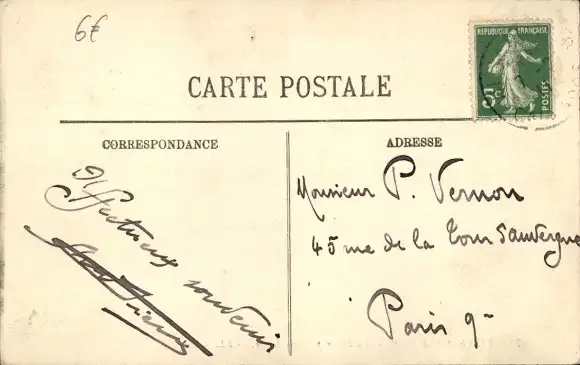 6€
REPUBLIQUE FRANÇAISE
5c
POSTES
CARTE POSTALE
CORRESPONDANCE
ADRESSE
souvenir
Monsieur P. Vernon
45 rue de la Tour d'auvergne
Paris 9-